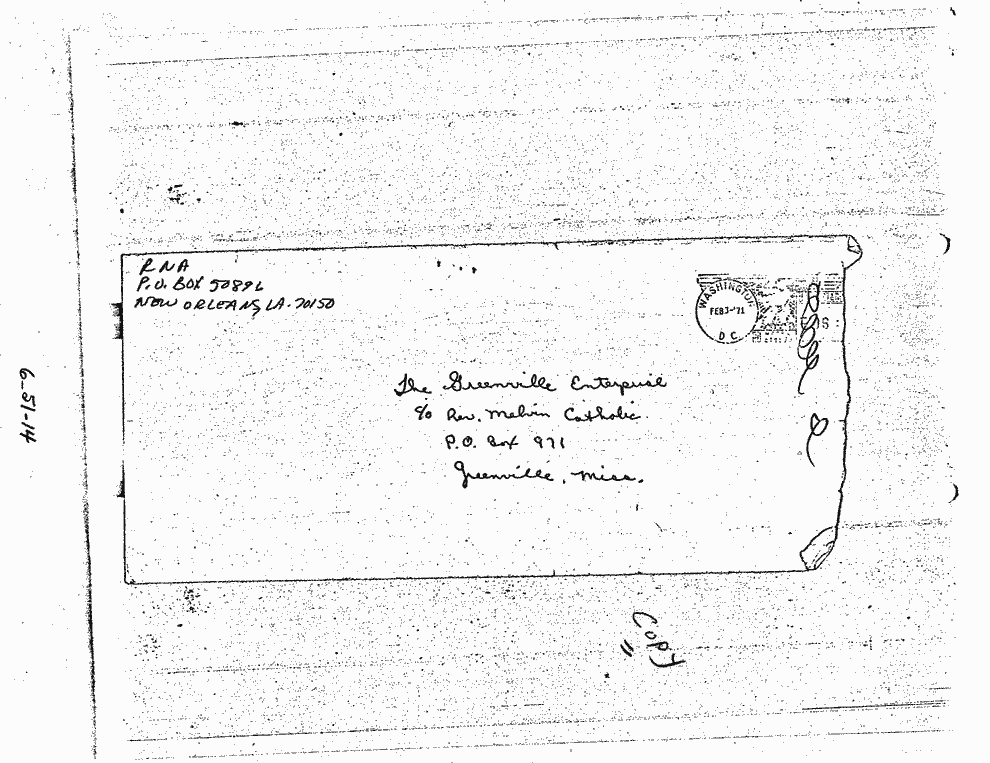 RNA
P.O. BOX 50896
NEW ORLEANS, LA. 70150
WASHINGTON
FEB 3-'71
D C
The Greenville Enterprise
c/o Rev. Melvin Catholic
P.O. Box 971
Greenville, Miss.
6-51-14
Copy
"